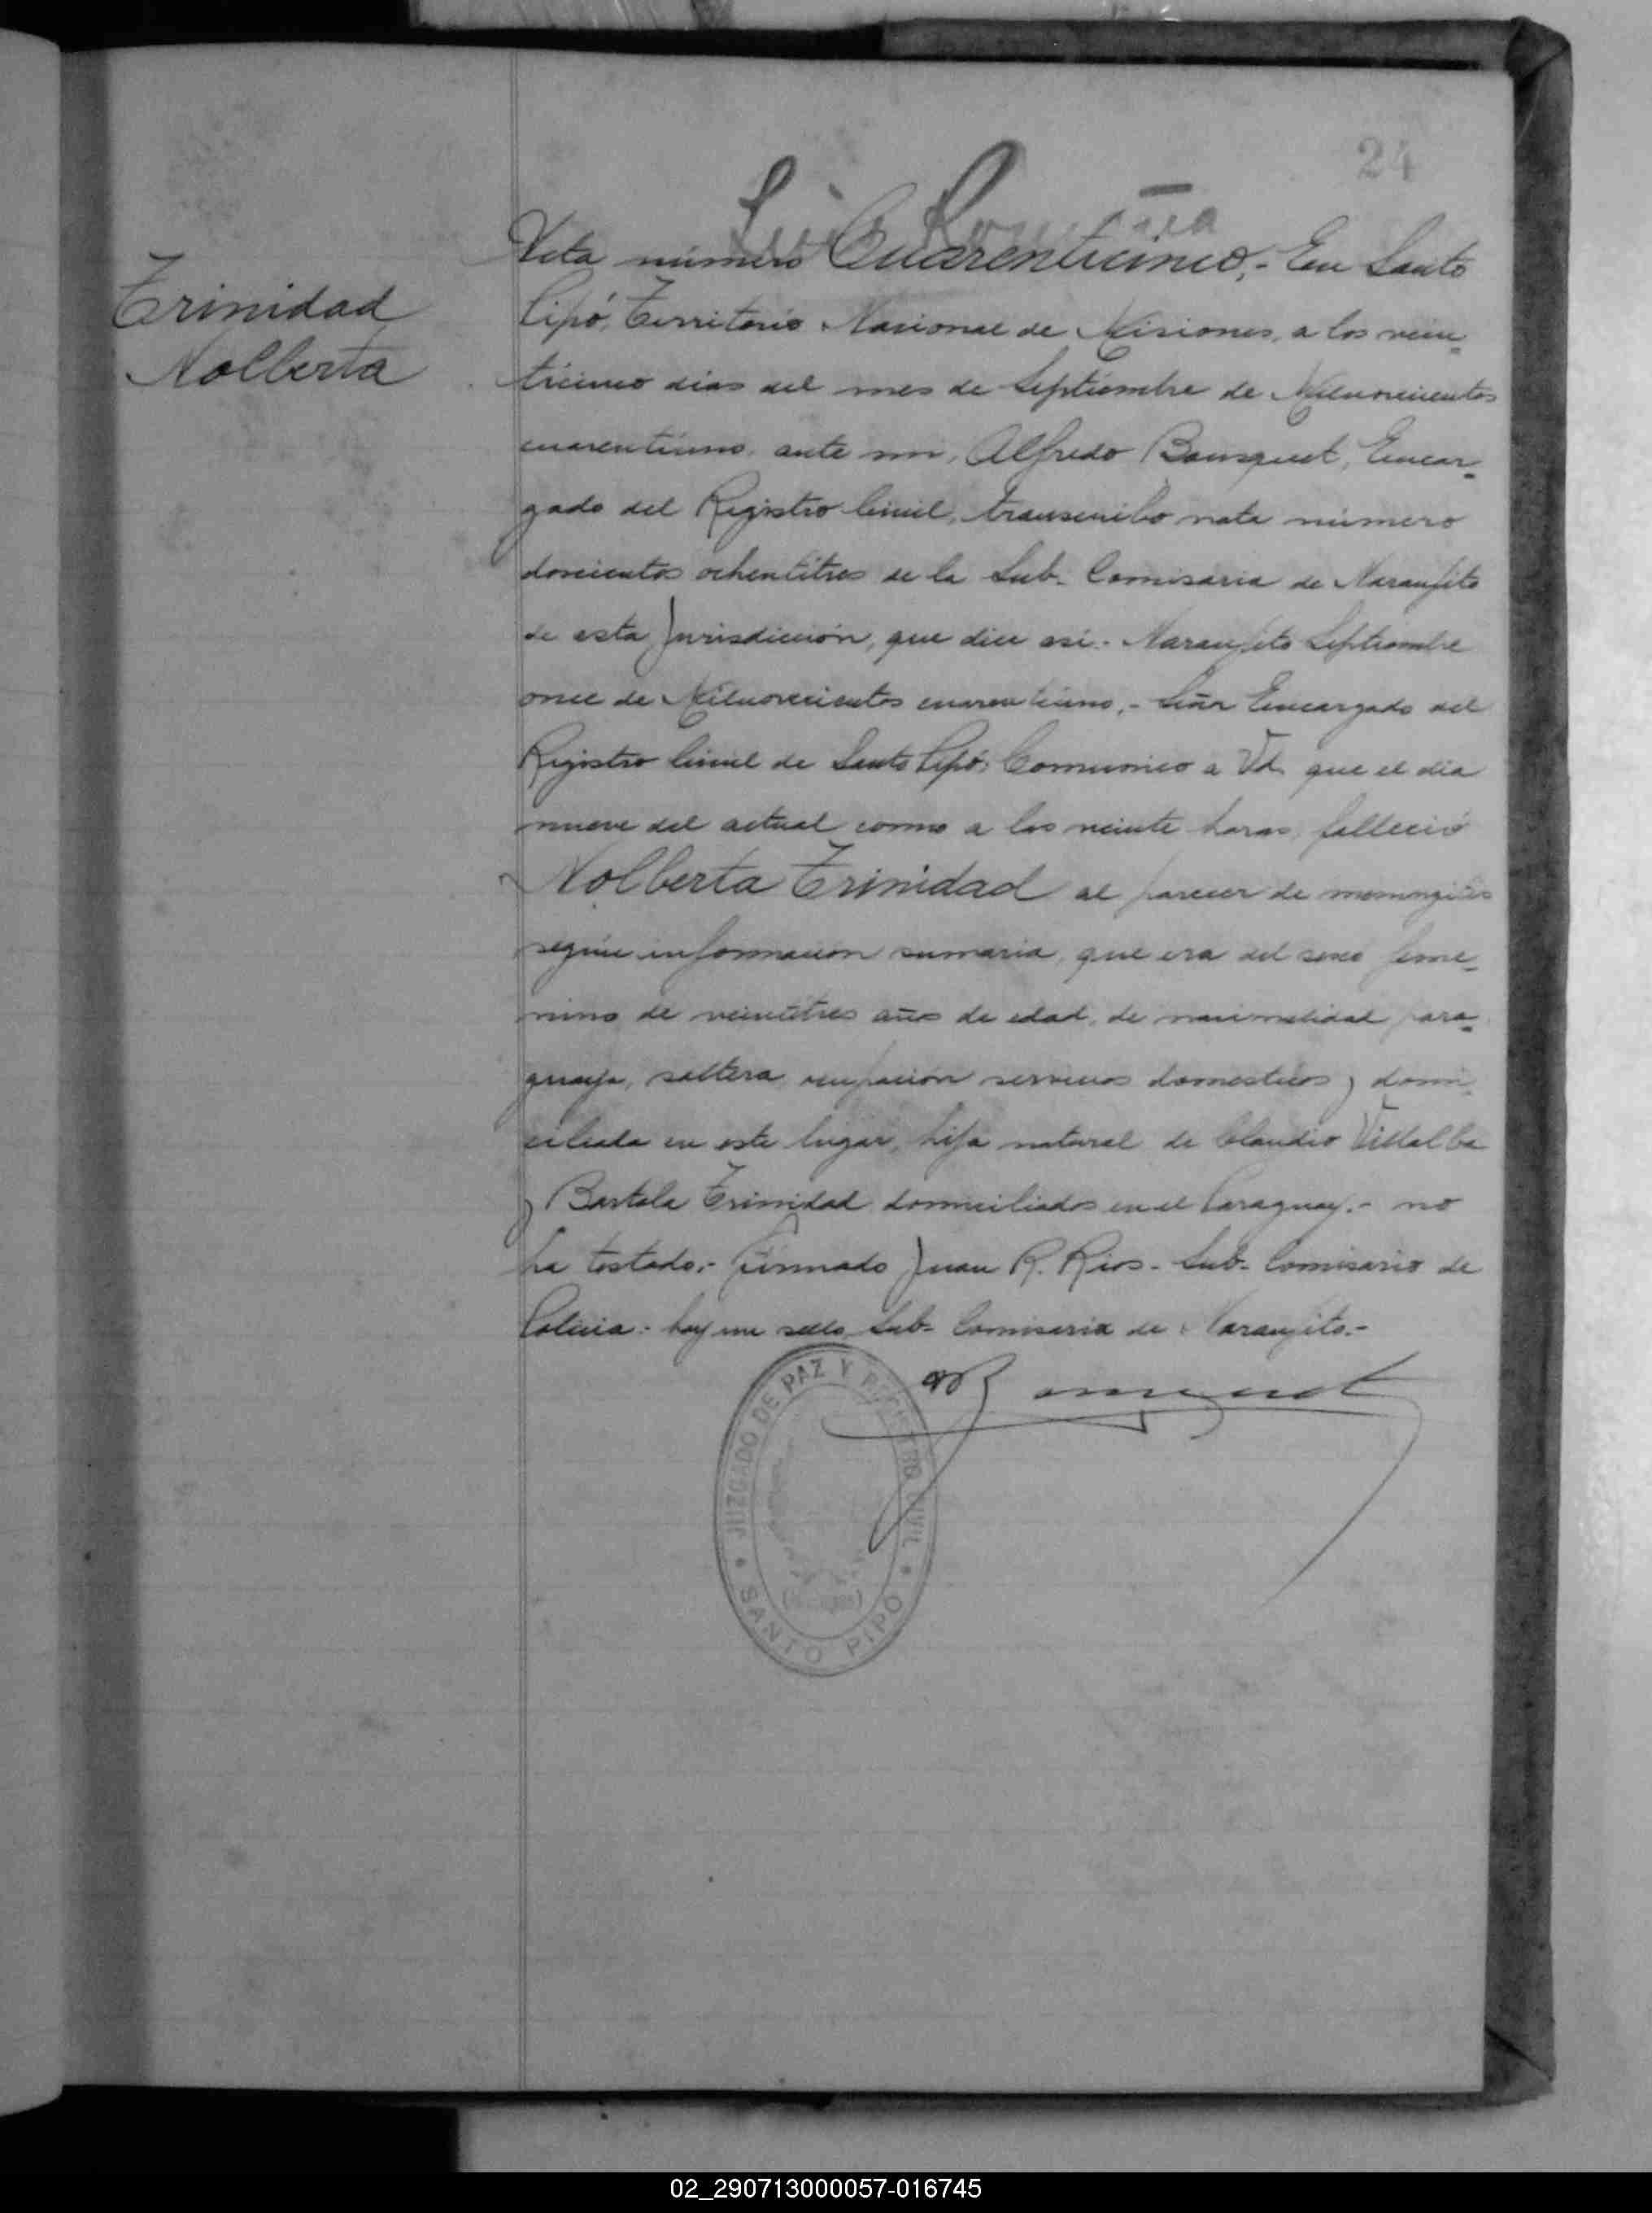 24
Acta número Cuarenticinco,- En Santo
Trinidad
Nolberta
Pipó, Territorio Nacional de Misiones, a los vein-
ticinco dias del mes de Septiembre de Milnovecientos
cuarentiuno, ante mi, Alfredo Bousquet, Encar-
gado del Registro Civil, transcribo nota número
doscientos ochentitres de la Sub- Comisaria de Naranjito
de esta Jurisdicción, que dice asi:- Naranjito Septiembre
once de Milnovecientos cuarentiuno,- Señor Encargado del
Registro Civil de Santo Pipó: Comunico a Vd. que el dia
nueve del actual como a las veinte horas, falleció
Nolberta Trinidad al parecer de meningitis
según informacion sumaria, que era del sexo feme-
nino de veintitres años de edad, de nacionalidad para-
guaya, soltera, ocupación servicios domesticos y domi-
ciliada en este lugar, hija natural de Claudio Villalba
y Bartola Trinidad domiciliados en el Paraguay.- no
ha testado.- firmado Juan R. Rios- Sub- Comisario de
Policia:- hay un sello Sub- Comisaria de Naranjito.-
JUZGADO DE PAZ Y REGISTRO CIVIL
SANTO PIPO
02_290713000057-016745